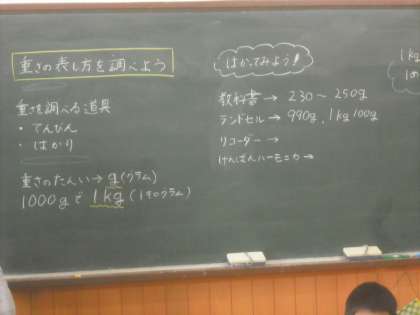 重さの表し方を調べよう
重さを調べる道具
・てんびん
・はかり
重さのたんい→g(グラム)
1000gで1kg(1キログラム)
はかってみよう!
教科書→230〜250g
ランドセル→990g、1kg100g
リコーダー→
けんばんハーモニカ→
1kg